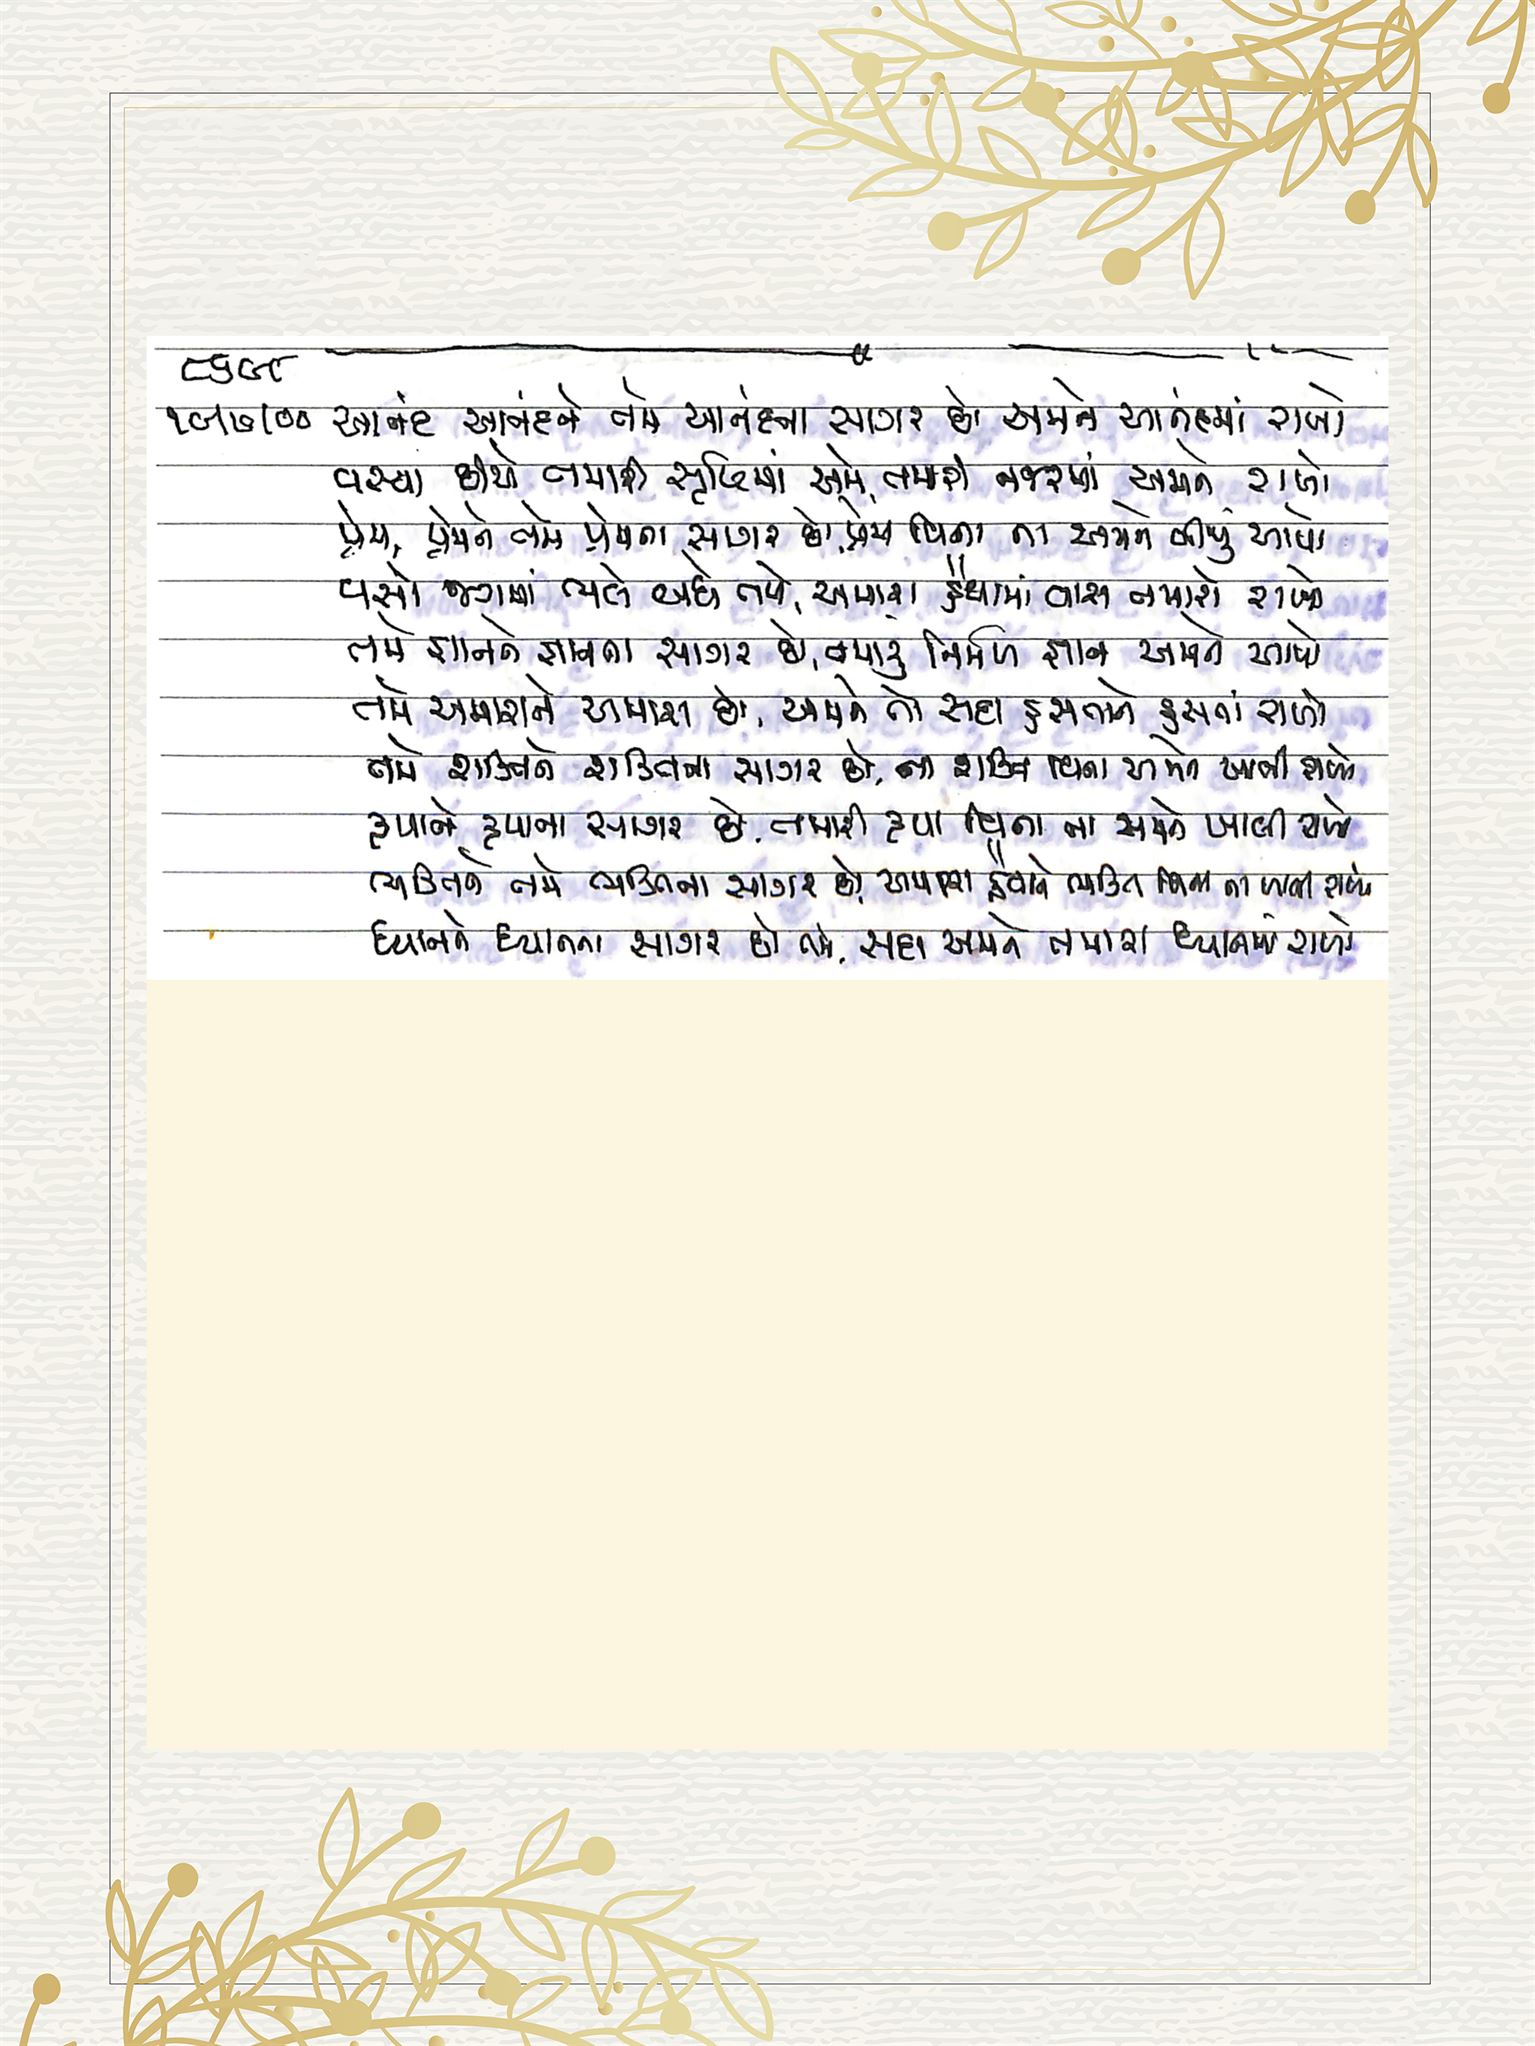 ૮૬૭૯
૧૭/૭/૦૦ આનંદ આનંદને તમે આનંદના સાગર છો અમને આનંદમાં રાખો
વસ્યા છીએ તમારી સૃષ્ટિમાં અમે, તમારી નજરમાં અમને રાખો
પ્રેમ, પ્રેમને તમે પ્રેમના સાગર છો, પ્રેમ વિના ના અમને બીજું આપો
વસો જગમાં ભલે બધે તમે, અમારા હૈયામાં વાસ તમારો રાખો
તમે જ્ઞાનને જ્ઞાનના સાગર છો, તમારું નિર્મળ જ્ઞાન અમને આપો
તમે અમારાને અમારા છો, અમને તો સદા હસતાને હસતાં રાખો
તમે શક્તિને શક્તિના સાગર છો, ના શક્તિ વિના અમને ખાલી રાખો
કૃપાને કૃપાના સાગર છો, તમારી કૃપા વિના ના અમને ખાલી રાખો
ભક્તિને તમે ભક્તિના સાગર છો, અમારા હૈયાને ભક્તિ વિના ના ખાલી રાખો
ધ્યાનને ધ્યાનના સાગર છો તમે, સદા અમને તમારા ધ્યાનમાં રાખો